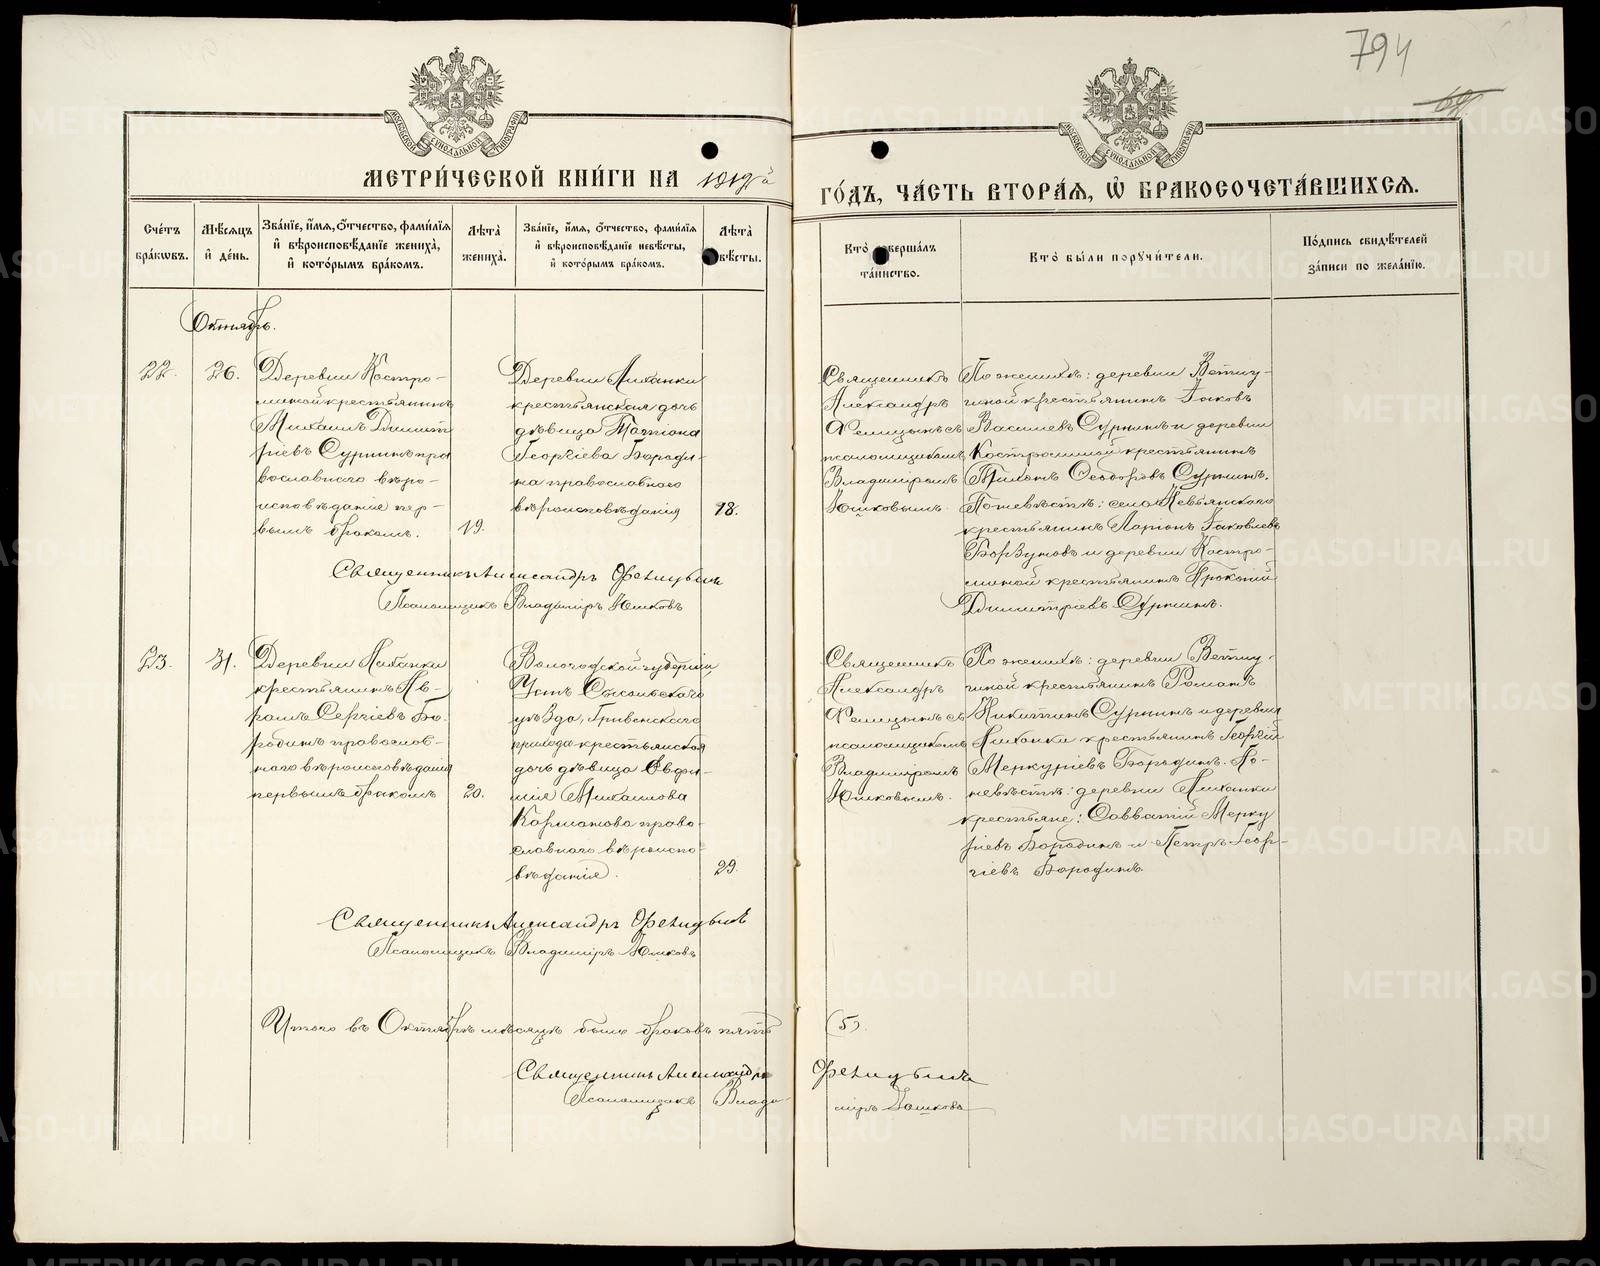 794
МОСКОВСКОЙ СѴНОДАЛЬНОЙ ТИПОГРАФІИ
МОСКОВСКОЙ СѴНОДАЛЬНОЙ ТИПОГРАФІИ
МЕТРИ́ЧЕСКОЙ КНИ́ГИ НА
ГО́ДЪ, ЧА́СТЬ ВТОРА́Я, Ѽ БРАКОСОЧЕТА́ВШИХСЯ.
Сче́тъ бра́ковъ.
Мѣ́сяцъ и҆ де́нь.
Зва́нїе, и҆́мя, ѻ҆́тчество, фами́лїя и҆ вѣроисповѣ́данїе жениха̀, и҆ кото́рымъ бра́комъ.
Лѣ́та жениха̀.
Зва́нїе, и҆́мя, ѻ҆́тчество, фами́лїя и҆ вѣроисповѣ́данїе невѣ́сты, и҆ кото́рымъ бра́комъ.
Лѣ́та
вѣ́сты.
Кто̀ соверша́лъ та́инство.
Кто̀ бы́ли порꙋчи́тели.
По́дпись свидѣ́телей за́писи по жела́нїю.
Октябрь.
22.
26.
Деревни Костро-
миной крестьянинъ
Михаилъ Димит
ріевъ Суринъ пра
вославнаго вѣро-
исповѣданія пер-
вымъ бракомъ.
19.
Деревни Лиханки
крестьянская дочь
дѣвица Татіана
Георгіева Бороди-
на православнаго
вѣроисповѣданія
18.
Священникъ
Александръ
съ
псаломщикомъ
Владиміромъ
Юшковымъ.
По женихѣ: деревни
крестьянинъ Іаковъ
Васильевъ Суринъ и деревни
Костроминой крестьянинъ
Ѳеодоровъ Суринъ.
По невѣстѣ: села Невьянскаго
крестьянинъ Ларіонъ Іаковлевъ
и деревни Костро-
миной крестьянинъ Прокопій
Димитріевъ Суринъ.
Священникъ Александръ
Псаломщикъ Владиміръ Юшковъ
23.
31.
Деревни Лиханки
крестьянинъ Ав-
раамъ Сергіевъ Бо-
родинъ православ-
наго вѣроисповѣданія
первымъ бракомъ
20.
Вологодской губерніи,
Устъ Сысольскаго
уѣзда, Гривенскаго
прихода крестьянская
дочь дѣвица Евфи-
мія Михаилова
Карманова право-
славнаго вѣроиспо-
вѣданія.
29.
Священникъ
Александръ
съ
псаломщикомъ
Владиміромъ
Юшковымъ.
По женихѣ: деревни
крестьянинъ Романъ
Никитинъ Суринъ и деревни
Лиханки крестьянинъ Георгій
Меркуріевъ Бородинъ. По
невѣстѣ: деревни Лиханки
крестьяне: Савватій Мерку
ріевъ Бородинъ и Петръ Геор-
гіевъ Бородинъ.
Священникъ Александръ
Псаломщикъ Владиміръ Юшковъ
Итого въ Октябрѣ мѣсяцѣ было браковъ пять (5).
Священникъ Александръ
Псаломщикъ Влади-
міръ Юшковъ
METRIKI.GASO-URAL.RU